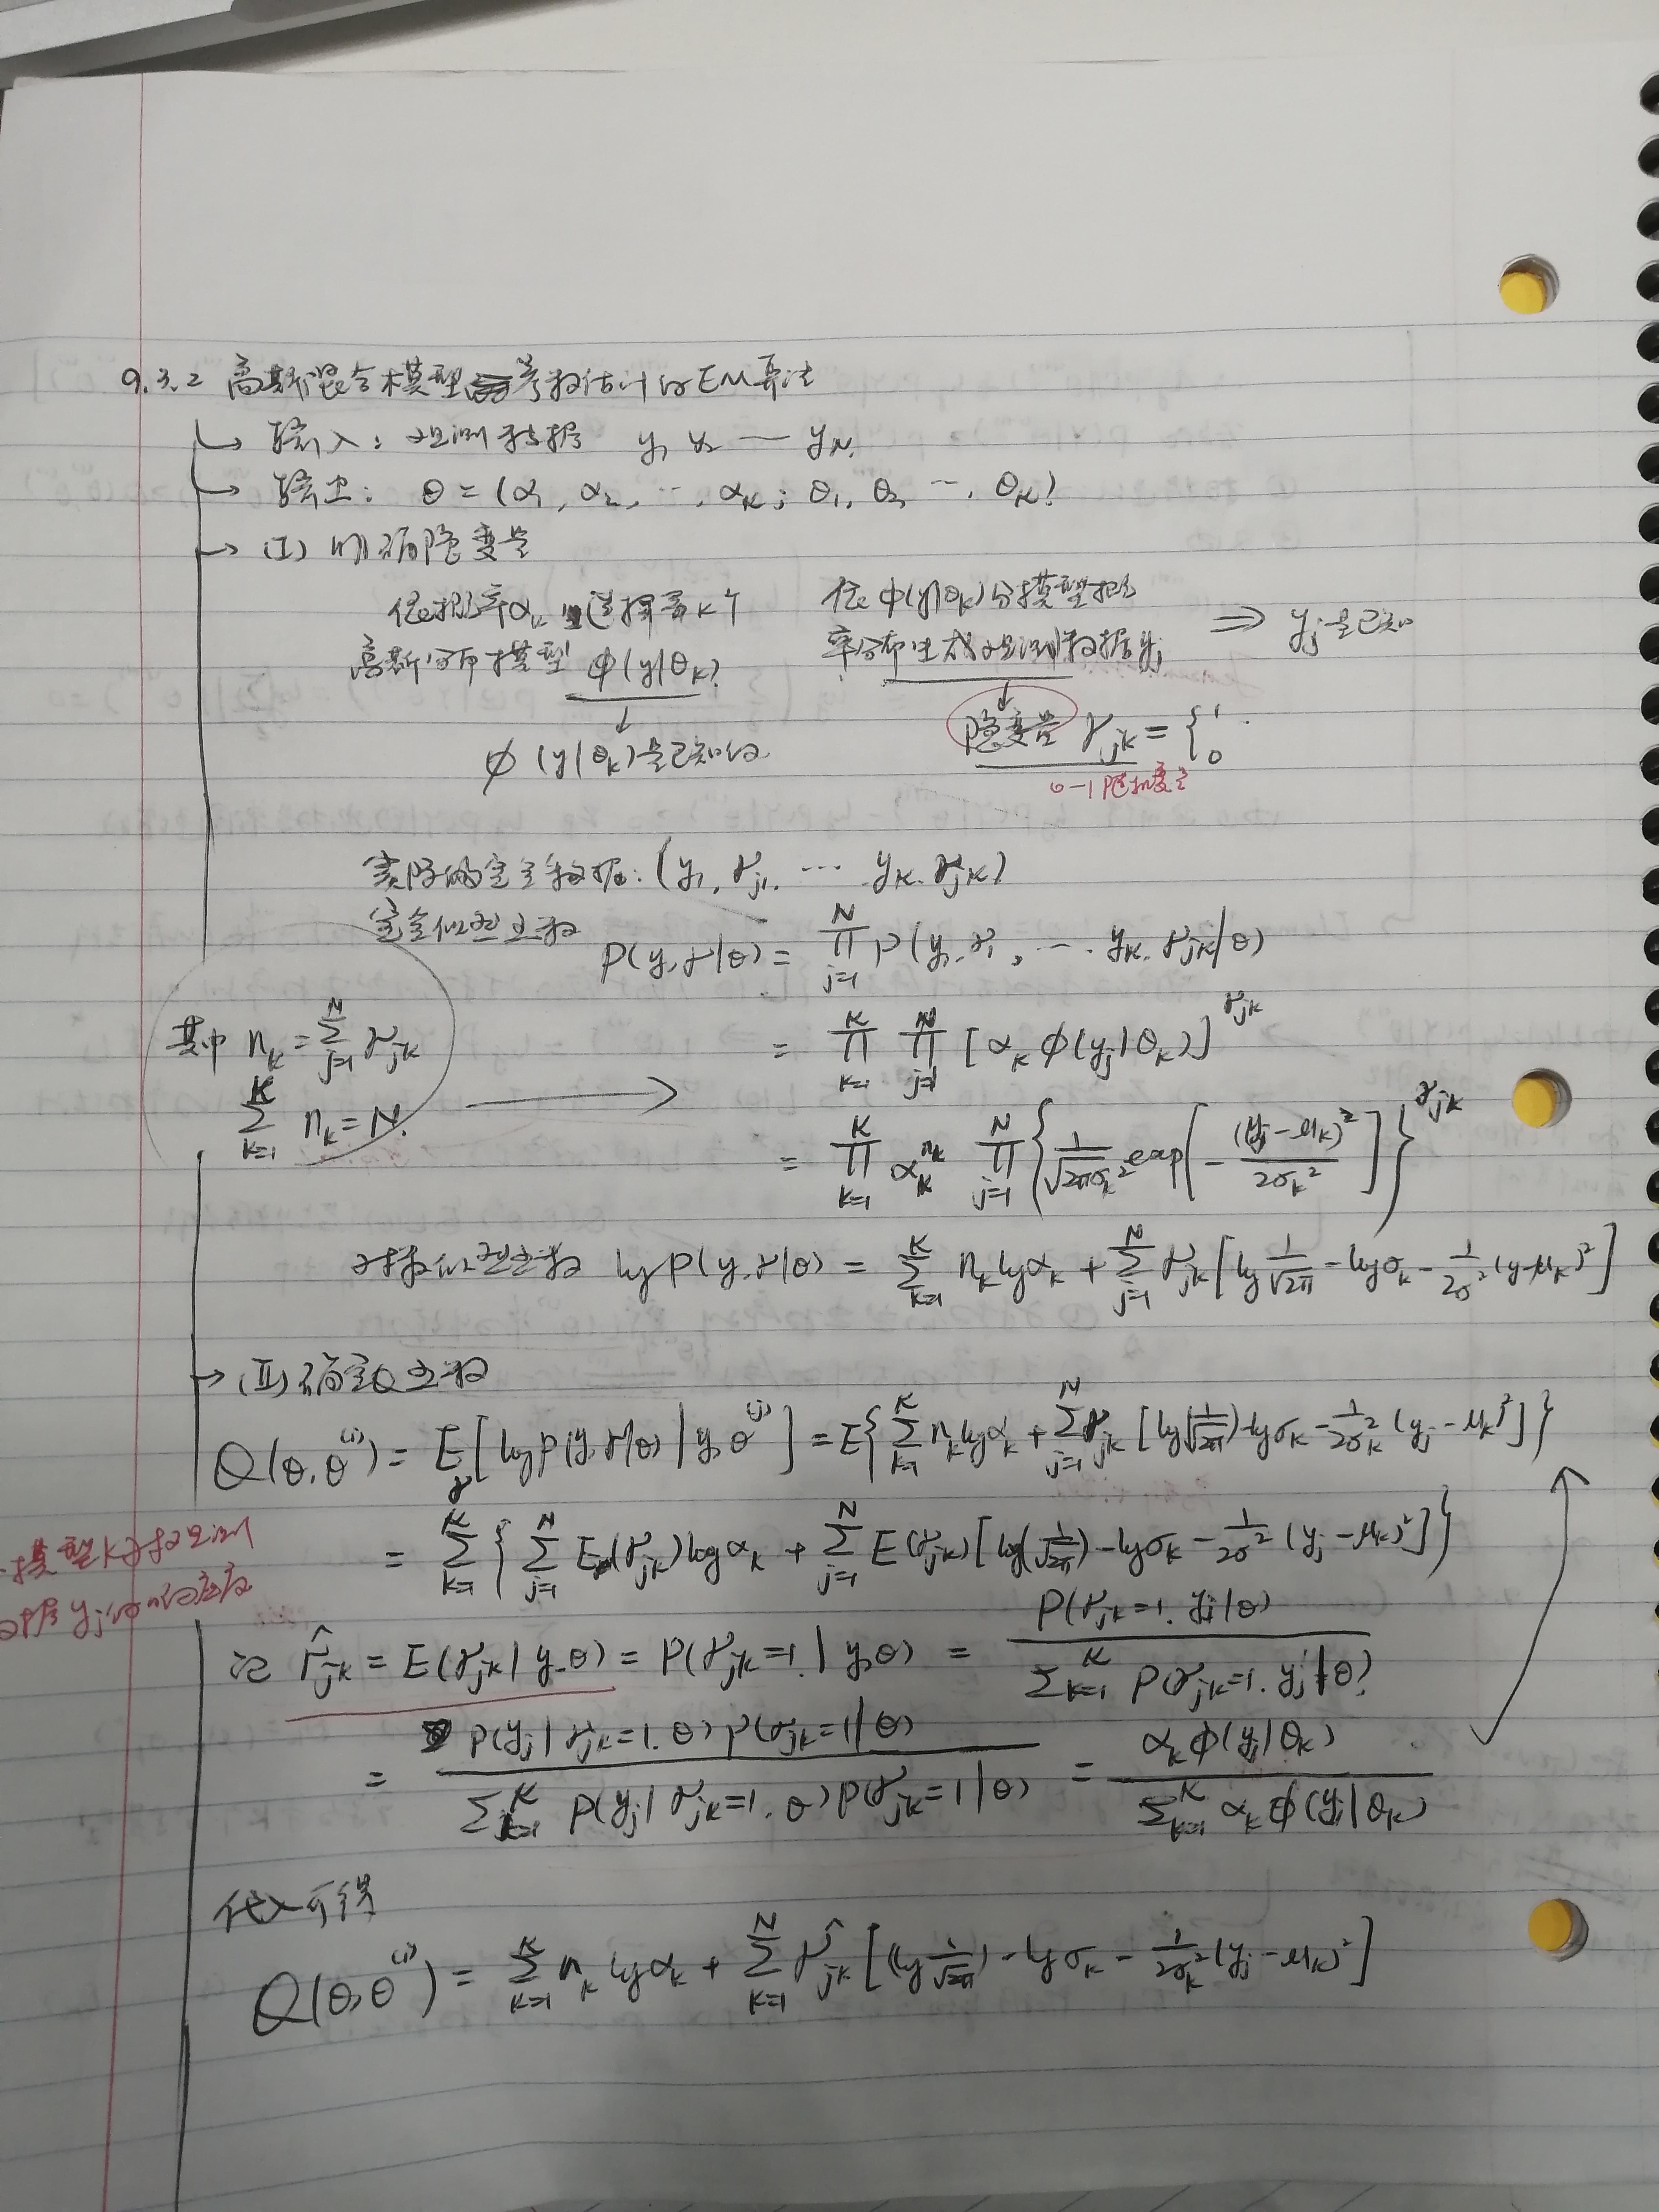 9.3.2 高斯混合模型参数估计的EM算法
输入: 观测数据 y₁ y₂ — y_N.
输出: θ = (α₁, α₂, …, α_K; θ₁, θ₂ …, θ_K)
(I) 明确隐变量
依概率α_k 选择第K个 依φ(y|θ_k)分模型概
高斯分布模型 φ(y|θ_k) 率分布生成观测数据y_j ⇒ y_j是已知
↓ ↓
φ(y|θ_k)是已知的 隐变量 γ_jk = { 1 0
0-1随机变量
实际的完全数据: (y₁, γ_j1, … y_K, γ_jK)
完全似然函数
P(y,γ|θ) = ∏_{j=1}^{N} P(y₁, γ₁, … y_K, γ_jK|θ)
其中 n_k = ∑_{j=1}^{N} γ_jk
= ∏_{k=1}^{K} ∏_{j=1}^{N} [α_k φ(y_j|θ_k)]^{γ_jk}
∑_{k=1}^{K} n_k = N. →
= ∏_{k=1}^{K} α_k^{n_k} ∏_{j=1}^{N} { 1/√(2πσ_k²) exp[ - (y_j-μ_k)²/2σ_k² ] }^{γ_jk}
对数似然函数 log P(y,γ|θ) = ∑_{k=1}^{K} n_k log α_k + ∑_{j=1}^{N} γ_jk [log 1/√2π - log σ_k - 1/2σ² (y-μ_k)²]
→ (II) 确定Q函数
Q(θ,θ^(i)) = E_γ[log P(y,γ|θ) | y,θ^(i)] = E{∑_{k=1}^{K} n_k log α_k + ∑_{j=1}^{N} γ_jk [log(1/√2π) - log σ_k - 1/2σ_k² (y_j - μ_k)²]}
= ∑_{k=1}^{K} { ∑_{j=1}^{N} E(γ_jk) log α_k + ∑_{j=1}^{N} E(γ_jk) [log(1/√2π) - log σ_k - 1/2σ² (y_j - μ_k)²] }
模型k对观测
数据y_j的响应度
记 γ̂_jk = E(γ_jk | y, θ) = P(γ_jk=1 | y,θ) = P(γ_jk=1, y_j|θ) / ∑_{k=1}^{K} P(γ_jk=1, y_j|θ)
= P(y_j|γ_jk=1, θ) P(γ_jk=1|θ) / ∑_{k=1}^{K} P(y_j|γ_jk=1, θ) P(γ_jk=1|θ) = α_k φ(y_j|θ_k) / ∑_{k=1}^{K} α_k φ(y_j|θ_k)
代入可得
Q(θ,θ^(i)) = ∑_{k=1}^{K} n_k log α_k + ∑_{k=1}^{N} γ̂_jk [(log 1/√2π) - log σ_k - 1/2σ_k² (y_j - μ_k)²]